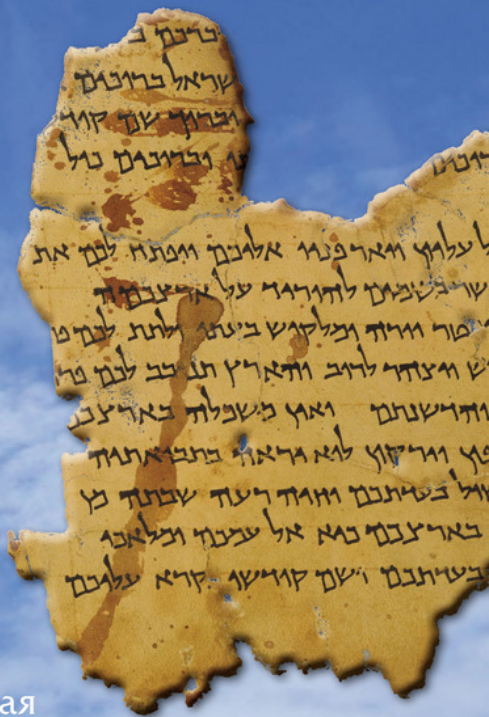 ברכם ב
שראל ברוכים
וברוך שם קוד
ו וברוכים כול
ל עליון ויאר פניו אליכם ויפתח לכם את
שר בשמים להוריד על ארצכמה
טר יורה ומלקוש בעתו ולתת לכם
ש ויצהר לרוב והארץ לכם פרי
והדשנתם ואין משכלה בארצכם
וירקון לוא יראה בתבואתיה
שול בעדתכם וחיה רעה שבתה מן
בארצכם כיא אל עמכם ומלאכי
בעדתכם ושם קודשו נקרא עליכם
ая